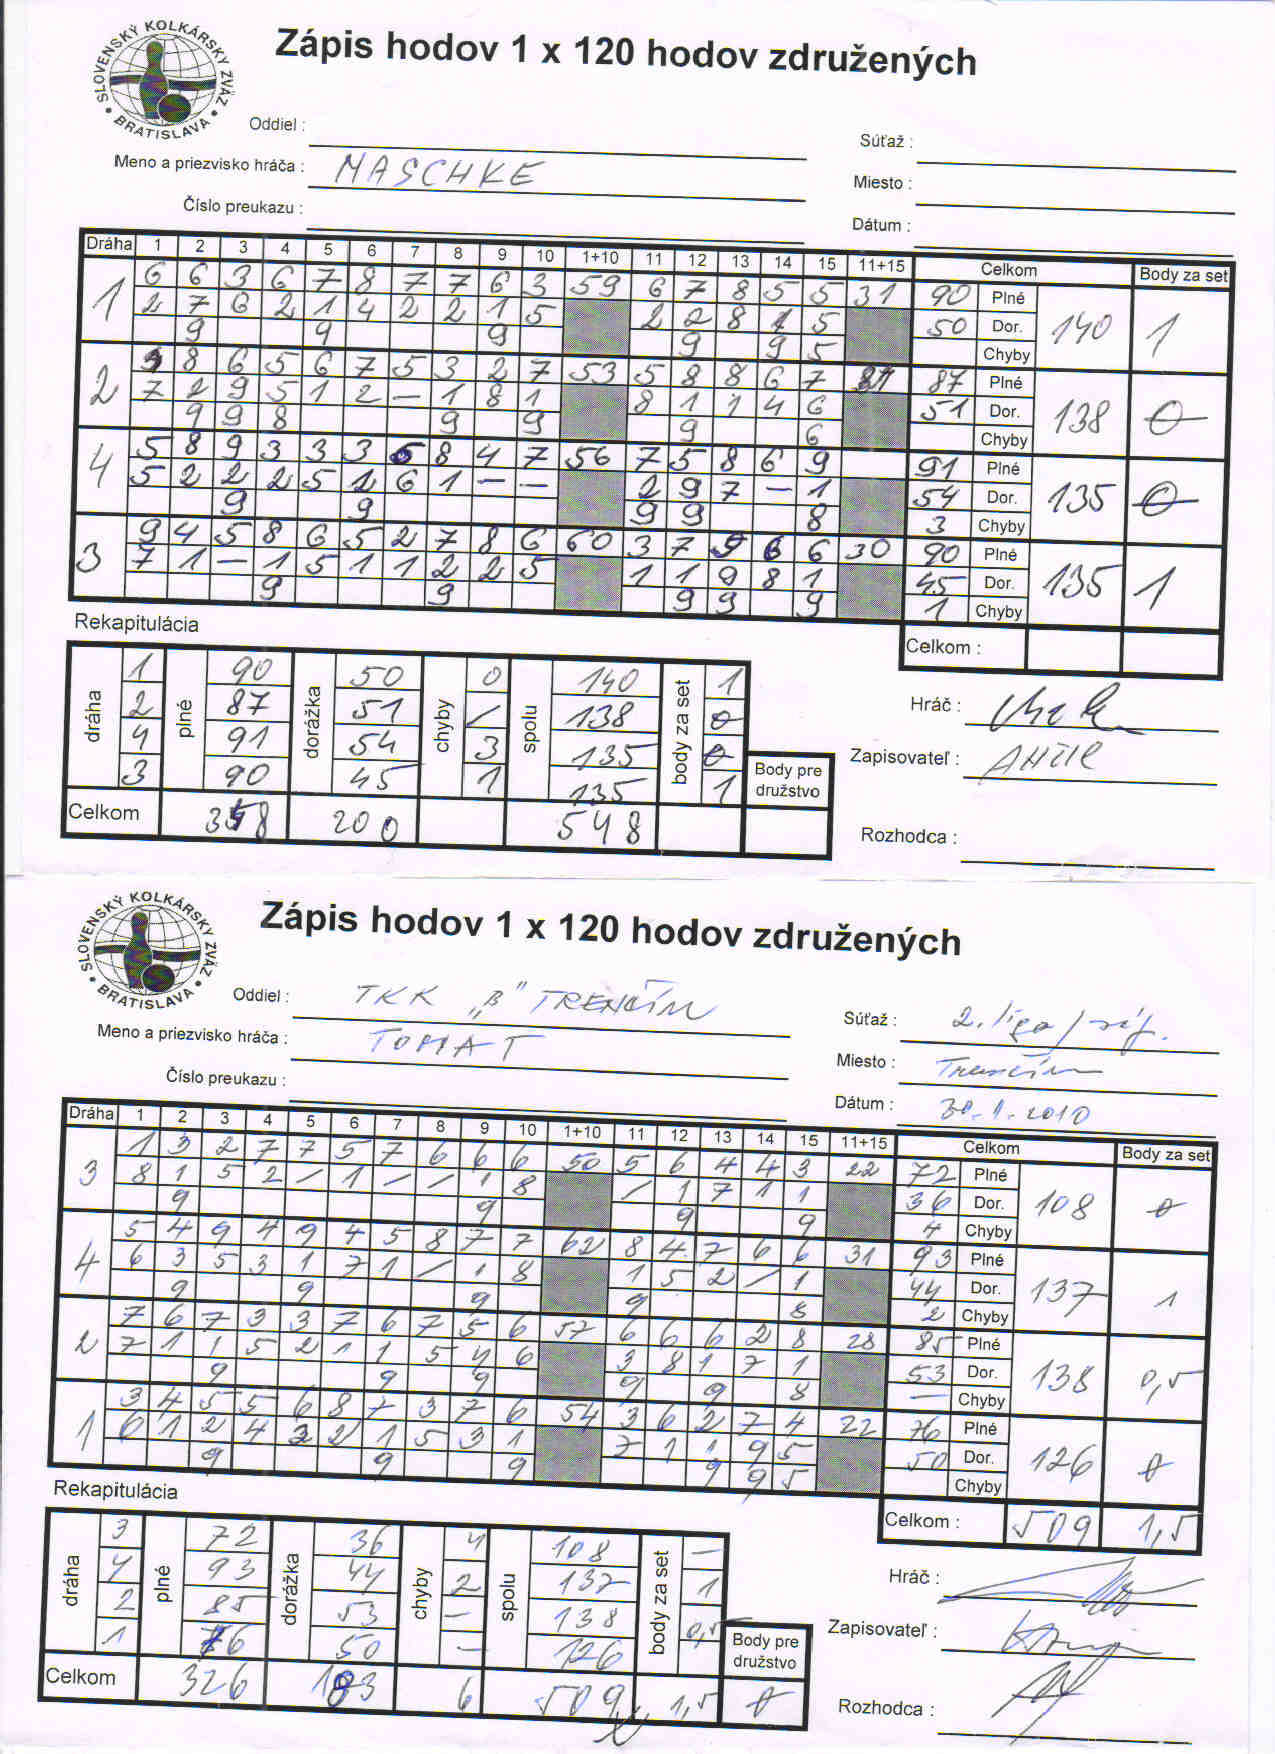 SLOVENSKÝ KOLKÁRSKY ZVÄZ • BRATISLAVA •
Zápis hodov 1 x 120 hodov združených
Oddiel :
Súťaž :
Meno a priezvisko hráča : MASCHKE
Miesto :
Číslo preukazu :
Dátum :
Dráha 1 2 3 4 5 6 7 8 9 10 1+10 11 12 13 14 15 11+15 Celkom Body za set
1 6 6 3 6 7 8 7 7 6 3 59 6 7 8 5 5 31 90 Plné 140 1
2 7 6 2 1 4 2 2 1 5 2 2 8 1 5 50 Dor.
9 9 9 9 9 5 Chyby
2 9 8 6 5 6 7 5 3 2 7 53 5 8 8 6 7 87 Plné 138 0
7 2 9 5 1 2 – 1 8 1 8 1 1 4 6 51 Dor.
9 9 8 9 9 9 6 Chyby
4 5 8 9 3 3 3 6 8 4 7 56 7 5 8 6 9 91 Plné 135 0
5 2 2 2 5 1 6 1 – – 2 9 7 – 1 54 Dor.
9 9 9 9 8 3 Chyby
3 9 4 5 8 6 5 2 7 8 6 60 3 7 5 6 6 30 90 Plné 135 1
7 1 – 1 5 1 1 2 2 5 1 1 9 8 1 45 Dor.
9 9 9 9 9 1 Chyby
Rekapitulácia
Celkom :
dráha 1 2 4 3
plné 90 87 91 90
dorážka 50 51 54 45
chyby 0 / 3 1
spolu 140 138 135 135
body za set 1 0 0 1
Body pre družstvo
Celkom 358 200 548
Hráč :
Zapisovateľ :
Rozhodca :
SLOVENSKÝ KOLKÁRSKY ZVÄZ • BRATISLAVA •
Zápis hodov 1 x 120 hodov združených
Oddiel : TKK „B" TRENČÍN
Súťaž : 2. liga /
Meno a priezvisko hráča : TOMAT
Miesto : Trenčín
Číslo preukazu :
Dátum : 30.1.2010
Dráha 1 2 3 4 5 6 7 8 9 10 1+10 11 12 13 14 15 11+15 Celkom Body za set
3 1 3 2 7 7 5 7 6 6 6 50 5 6 4 4 3 22 72 Plné 108 0
8 1 5 2 / 1 / / 1 8 / 1 7 1 1 36 Dor.
9 9 9 9 4 Chyby
4 5 4 9 4 9 4 5 8 7 7 62 8 4 7 6 6 31 93 Plné 137 1
6 3 5 3 1 7 1 / 1 8 1 5 2 / 1 44 Dor.
9 9 9 9 8 2 Chyby
2 7 6 7 3 3 7 6 7 5 6 57 6 6 6 2 8 28 85 Plné 138 0,5
7 1 1 5 2 1 1 5 4 6 3 8 1 7 1 53 Dor.
9 9 9 9 9 8 – Chyby
1 3 4 5 5 6 8 7 3 7 6 54 3 6 2 7 4 22 76 Plné 126 0
6 1 2 4 2 2 1 5 3 1 7 1 1 9 5 50 Dor.
9 9 9 9 9 5 Chyby
Rekapitulácia
Celkom : 509 1,5
dráha 3 4 2 1
plné 72 93 85 76
dorážka 36 44 53 50
chyby 4 2 – –
spolu 108 137 138 126
body za set – 1 0,5
Body pre družstvo
Celkom 326 183 6 509 1,5 0
Hráč :
Zapisovateľ :
Rozhodca :